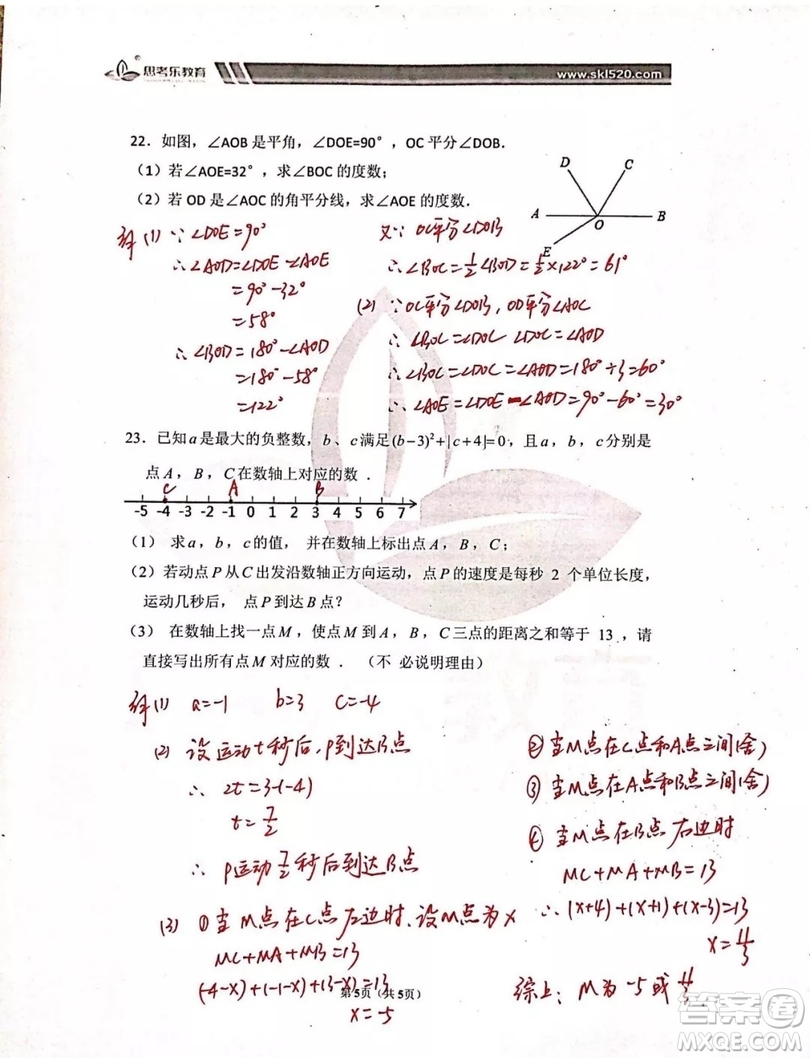 思考乐教育
www.skl520.com
22. 如图，∠AOB 是平角，∠DOE=90°，OC 平分∠DOB.
(1) 若∠AOE=32°，求∠BOC 的度数；
(2) 若 OD 是∠AOC 的角平分线，求∠AOE 的度数.
D
C
A
O
B
E
解(1) ∵∠DOE=90°
∴∠AOD=∠DOE-∠AOE
=90°-32°
=58°
∴∠BOD=180°-∠AOD
=180°-58°
=122°
又∵OC平分∠DOB
∴∠BOC=1/2∠BOD=1/2×122°=61°
(2) ∵OC平分∠DOB, OD平分∠AOC
∴∠BOC=∠DOC ∠DOC=∠AOD
∴∠BOC=∠DOC=∠AOD=180°÷3=60°
∴∠AOE=∠DOE-∠AOD=90°-60°=30°
23. 已知a是最大的负整数，b、c满足(b-3)²+|c+4|=0，且a，b，c分别是
点A，B，C在数轴上对应的数．
C A B
-5 -4 -3 -2 -1 0 1 2 3 4 5 6 7
(1) 求a，b，c的值， 并在数轴上标出点A，B，C；
(2) 若动点P从C出发沿数轴正方向运动，点P的速度是每秒 2 个单位长度，
运动几秒后， 点P到达B点？
(3) 在数轴上找一点M，使点M到A，B，C三点的距离之和等于 13 ，请
直接写出所有点M对应的数． （不 必说明理由）
解(1) a=-1 b=3 c=-4
(2) 设运动t秒后，P到达B点
∴ 2t=3-(-4)
t=7/2
∴ P运动7/2秒后到达B点
(3) ①当M点在C点左边时，设M点为x
MC+MA+MB=13
(-4-x)+(-1-x)+(3-x)=13
x=-5
②当M点在C点和A点之间(舍)
③当M点在A点和B点之间(舍)
④当M点在B点右边时
MC+MA+MB=13
∴(x+4)+(x+1)+(x-3)=13
x=11/3
综上：M为-5或11/3
第5页（共5页）
答案圈
MXQE.COM